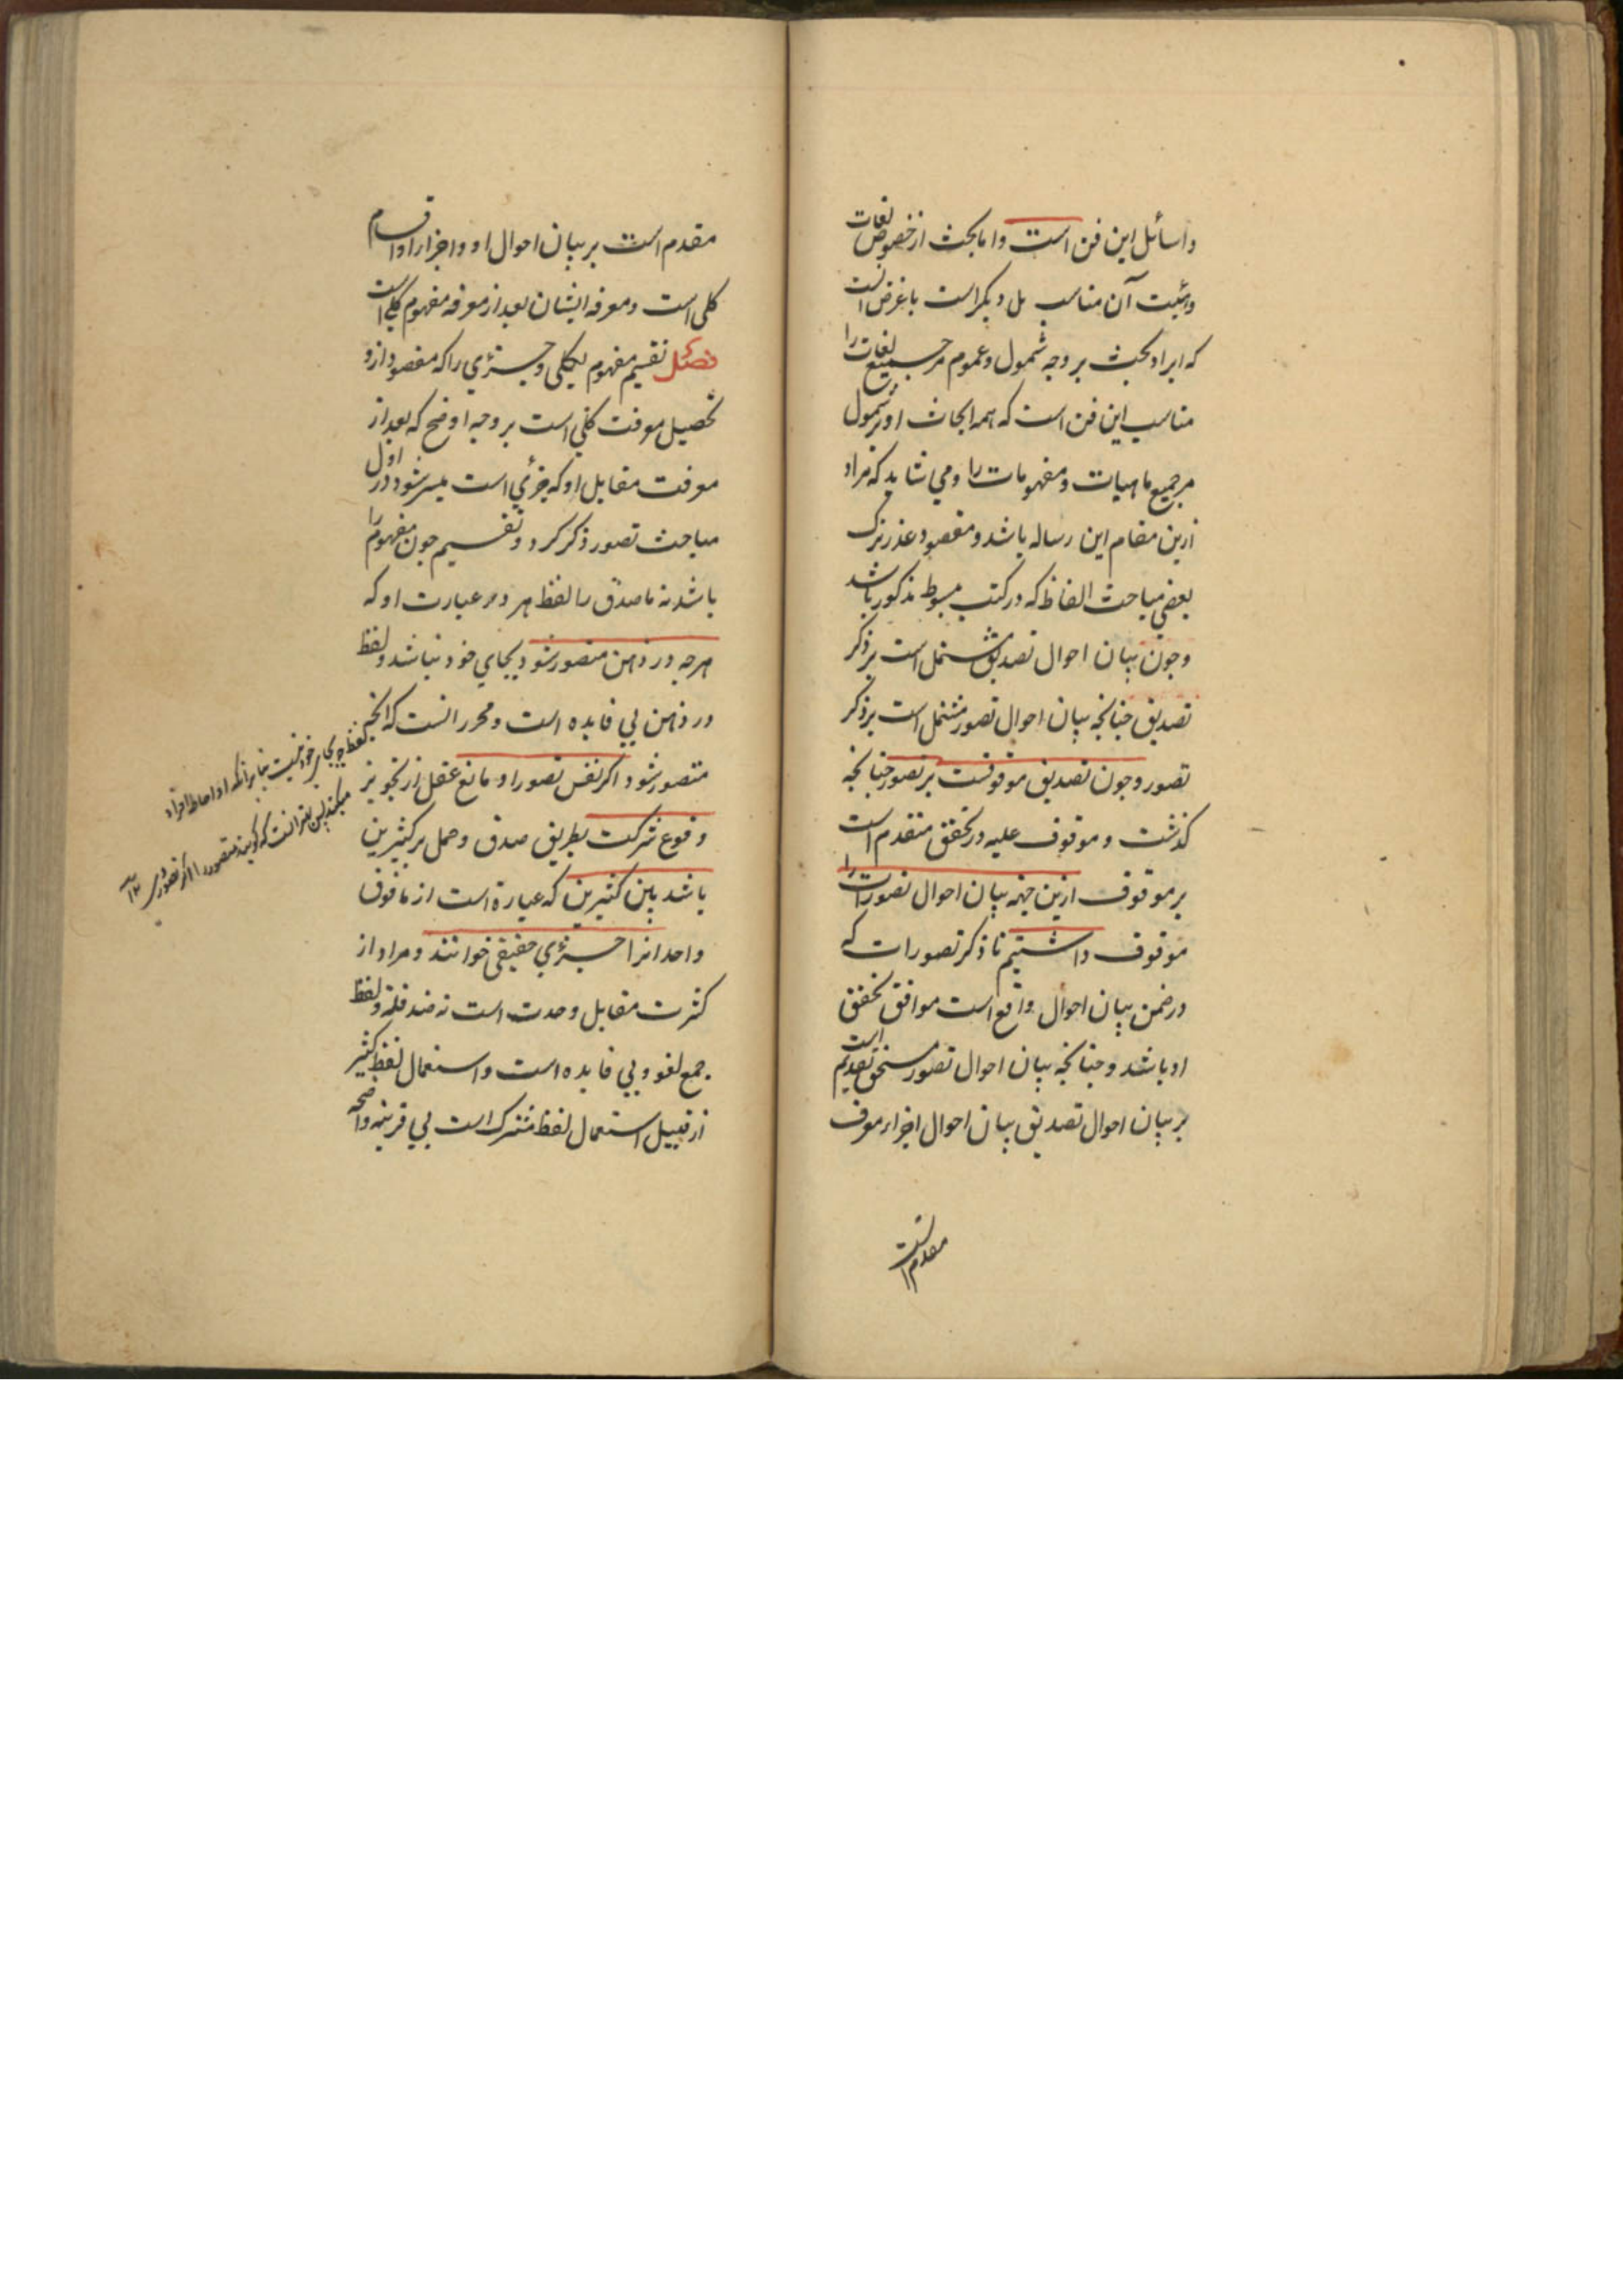 و اسائل این فن است و اما بحث از خصوص لغات
و اثبت آن مناسب بل دیکر است با غرض آنست
که ایراد بحث بر وجه شمول و عموم مر جمیع لغات را
مناسب این فن است که همه ابحاث او بر شمول
مر جمیع ماهیات و مفهومات را و می شاید که مراد
ازین مقام این رساله باشد و مقصود عذر ترک
بعضی مباحث الفاظ که در کتب مبسوط مذکور باشد
و جون بیان احوال تصدیق مشتمل است بر ذکر
تصدیق جنانجه بیان احوال تصور مشتمل است بر ذکر
تصور و جون تصدیق موقوفست بر تصور جنانجه
کذشت و موقوف علیه در تحقق متقدم است
بر موقوف ازین جهة بیان احوال تصورات را
موقوف داشتیم تا ذکر تصورات که
در ضمن بیان احوال واقع است موافق تحقق
او باشد و جنانجه بیان احوال تصور مستحق تقدیم است
بر بیان احوال تصدیق بیان احوال اجزاء معرف
مقدم است
مقدم است بر بیان احوال او و اجزاء او اقسام
کلی است و معرفه ایشان بعد از معرفه مفهوم کلی است
فصل تقسیم مفهوم بکلی و جزئی را که مقصود ازو
تحصیل معرفت کلی است بر وجه اوضح که بعد از
معرفت مقابل او که جزئی است میسر شود در اول
مباحث تصور ذکر کرد و تقسیم جون مفهوم را
باشد نه ما صدق را لفظ هر در عبارت او که
هرجه در ذهن متصور شود بجای خود نباشد و لفظ
در ذهن بی فایده است و محرر آنست که آنجه
متصور شود اکر نفس تصور او مانع عقل از تجویز
وقوع شرکت بطریق صدق و حمل بر کثیرین
باشد باین کثیرین که عبارة است از ما فوق
واحد انرا جزئی حقیقی خوانند و مراد از
کثرت مقابل وحدت است نه ضد قلة و لفظ
جمع لغو و بی فایده است و استعمال لفظ کثیر
از قبیل استعمال لفظ مشترک است بی قرینه واضحه
لفظ بجای خود نیست بنابر آنکه او احاطه افراد
میکند پس بهتر آنست که کویند متصور